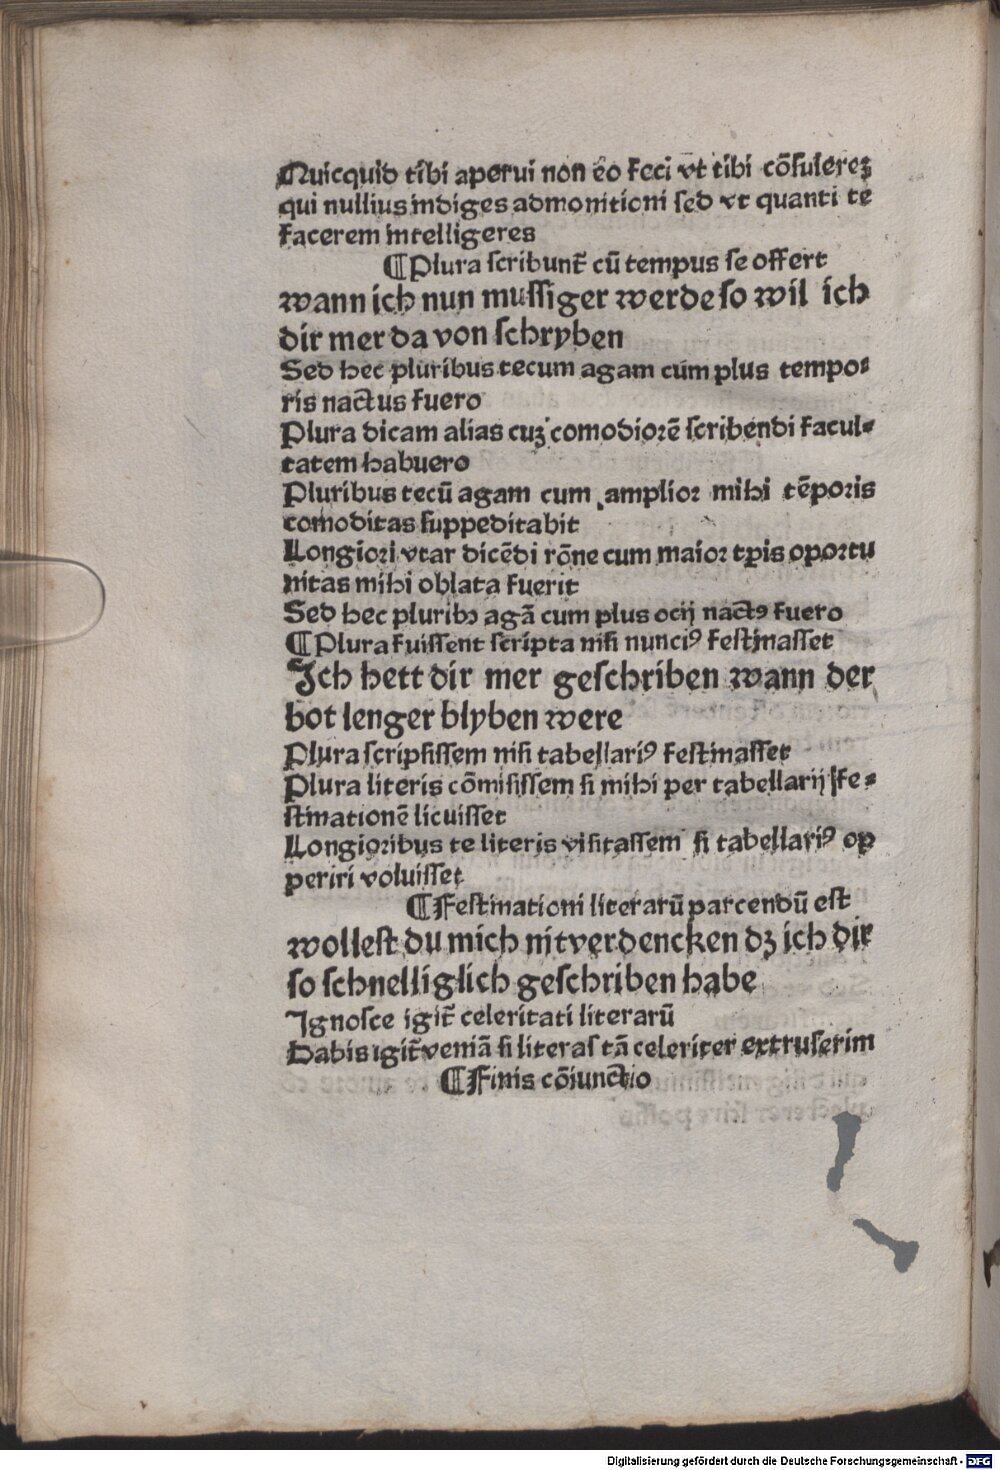 Quicquid tibi aperui non eo feci vt tibi cōsulereʒ
qui nullius indiges admonitioni sed vt quanti te
facerem intelligeres
¶ Plura scribunt᷑ cū tempus se offert
wann ich nun mussiger werde so wil ich
dir mer da von schryben
Sed hec pluribus tecum agam cum plus tempo⸗
ris nactus fuero
Plura dicam alias cuʒ comodiorē scribendi facul⸗
tatem habuero
Pluribus tecū agam cum amplior mihi tēporis
comoditas suppeditabit
Longiori vtar dicēdi rōne cum maior tꝑis oportu
nitas mihi oblata fuerit
Sed hec pluribꝫ agā cum plus ocij nactꝰ fuero
¶ Plura fuissent scripta nisi nunciꝰ festinasset
Ich hett dir mer geschriben wann der
bot lenger blyben were
Plura scripsissem nisi tabellariꝰ festinasset
Plura literis cōmisissem si mihi per tabellarij fe⸗
stinationē licuisset
Longioribus te literis visitassem si tabellariꝰ op
periri voluisset
¶ Festinationi literarū parcendū est
wollest du mich nit verdencken dʒ ich dir
so schnelliglich geschriben habe
Ignosce igit᷑ celeritati literarū
Dabis igit᷑ veniā si literas tā celeriter extruserim
¶ Finis cōiunctio
Digitalisierung gefördert durch die Deutsche Forschungsgemeinschaft - DFG